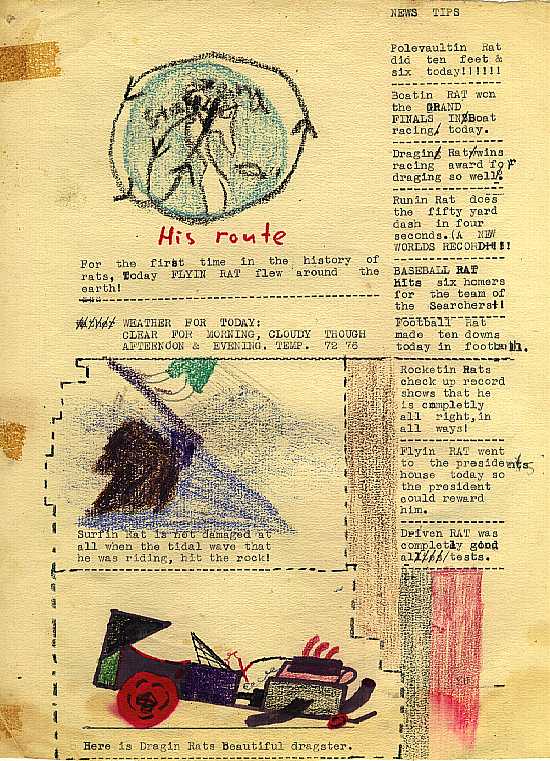 NEWS TIPS
Polevaultin Rat
did ten feet &
six today!!!!!!
Boatin RAT won
the GRAND
FINALS IN Boat
racing, today.
Dragin Rat wins
racing award for
draging so well!
Runin Rat does
the fifty yard
dash in four
seconds.(A NEW
WORLDS RECORD!!!!
BASEBALL RAT
hits six homers
for the team of
the Searchers!!
Football Rat
made ten downs
today in football.
Rocketin Rats
check up record
shows that he
is cmpletly
all right,in
all ways!
Flyin RAT went
to the presidents
house today so
the president
could reward
him.
Driven RAT was
completly good
all tests.
His route
For the first time in the history of
rats, Today FLYIN RAT flew around the
earth!
WEATHER FOR TODAY:
CLEAR FOR MORNING, CLOUDY THOUGH
AFTERNOON & EVENING. TEMP. 72 76
Surfin Rat is not damaged at
all when the tidal wave that
he was riding, hit the rock!
Here is Dragin Rats Beautiful dragster.